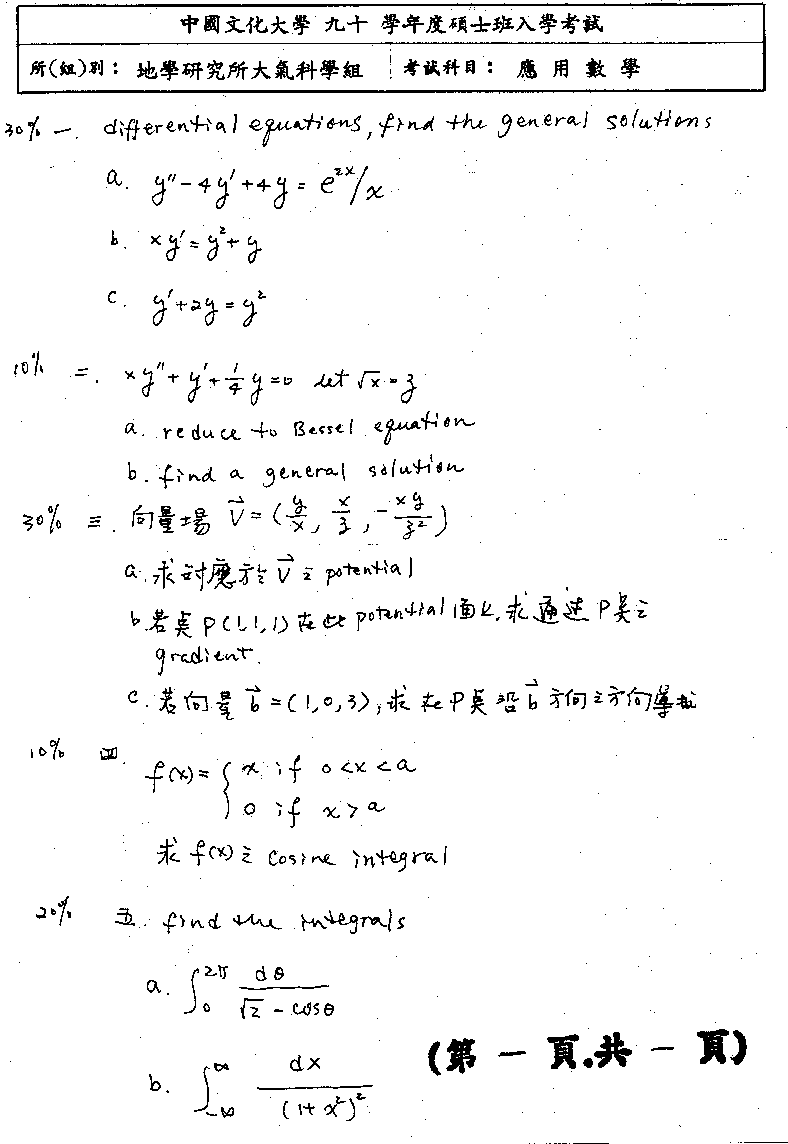 中國文化大學 九十 學年度碩士班入學考試
所(組)別： 地學研究所大氣科學組 考試科目： 應用數學
30% 一. differential equations, find the general solutions
a. y''-4y'+4y = e^{2x}/x
b. xy' = y²+y
c. y'+2y = y²
10% 二. xy''+y'+1/4 y=0 let √x=z
a. reduce to Bessel equation
b. find a general solution
30% 三. 向量場 V⃗=(y/x, x/z, -xy/z²)
a. 求對應於V⃗之potential
b. 若點P(1,1,1)在此potential面上, 求通過P點之
gradient.
c. 若向量b⃗=(1,0,3), 求在P點沿b⃗方向之方向導數
10% 四. f(x)={ x if 0<x<a
0 if x>a
求f(x)之cosine integral
20% 五. find the integrals
a. ∫₀^{2π} dθ/(√2 - cosθ)
b. ∫_{-∞}^{∞} dx/(1+x²)²
(第 一 頁.共 一 頁)